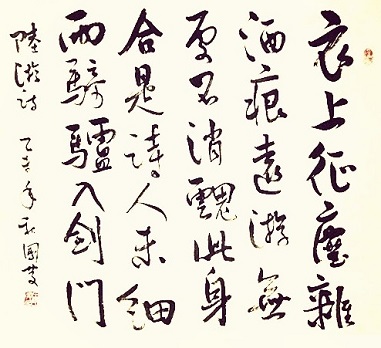 衣上征塵雜
酒痕遠游無
處不消魂此身
合是詩人未細
雨騎驢入劍門
陸游詩 乙亥年